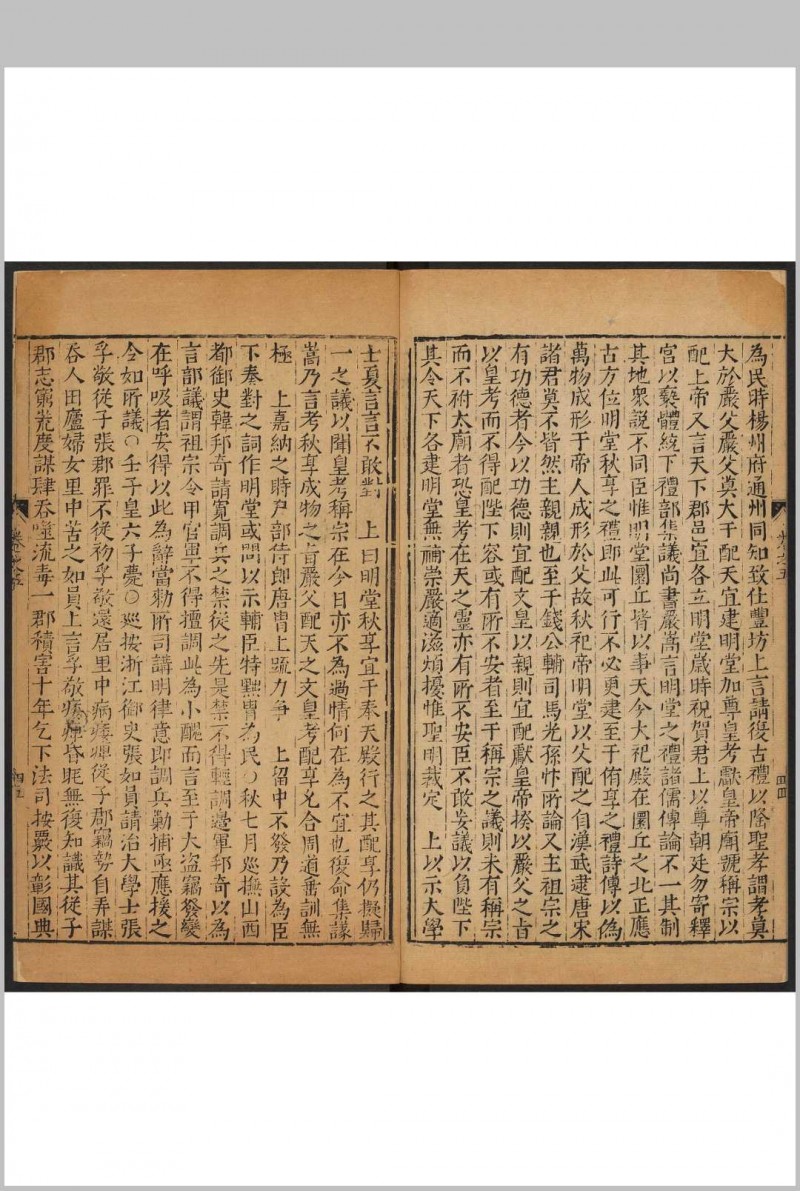 為民時楊州府通州同知致仕豐坊上言請復古禮以隆聖孝謂孝莫
大於嚴父嚴父莫大于配天宜建明堂加尊皇考獻皇帝廟號稱宗以
配上帝又言天下郡邑宜各立明堂歲時祝賀君上以尊朝廷勿寄釋
宮以褻體統下禮部集議尚書嚴嵩言明堂之禮諸儒傳論不一其制
其地衆說不同臣惟明堂圜丘皆以事天今大祀殿在圜丘之北正應
古方位明堂秋享之禮即此可行不必更建至于侑享之禮詩傳以為
萬物成形于帝人成形於父故秋祀帝明堂以父配之自漢武逮唐宋
諸君莫不皆然主親親也至于錢公輔司馬光孫忭所論又主祖宗之
有功德者今以功德則宜配文皇以親則宜配獻皇帝揆以嚴父之旨
以皇考而不得配陛下容或有所不安者至于稱宗之議則未有稱宗
而不祔太廟者恐皇考在天之靈亦有所不安臣不敢妄議以負陛下
其令天下各建明堂無補崇嚴適滋煩擾惟聖明裁定　上以示大學
四四
士夏言言不敢對　上曰明堂秋享宜于奉天殿行之其配享仍擬歸
一之議以聞皇考稱宗在今日亦不為過情何在為不宜也復命集議
嵩乃言考秋享成物之旨嚴父配天之文皇考配享允合周道垂訓無
極　上嘉納之時戶部侍郎唐冑上疏力爭　上留中不發乃設為臣
下奏對之詞作明堂或問以示輔臣特黜冑為民○秋七月巡撫山西
都御史韓邦奇請寬調兵之禁從之先是禁不得輕調邊軍邦奇以為
言部議謂祖宗令甲官軍不得擅調此為小醜而言至于大盜竊發變
在呼吸者安得以此為辭當勑所司講明律意即調兵勦捕亟應援之
令如所議○壬子皇六子薨○巡按浙江御史張如員請治大學士張
孚敬從子張郡罪不從初孚敬還居里中病痿痺從子郡竊勢自弄謀
吞人田廬婦女里中苦之如員上言孚敬瘓瘴昏眊無復知識其從子
郡志窮光度謀肆吞噬流毒一郡積害十年乞下法司按覈以彰國典